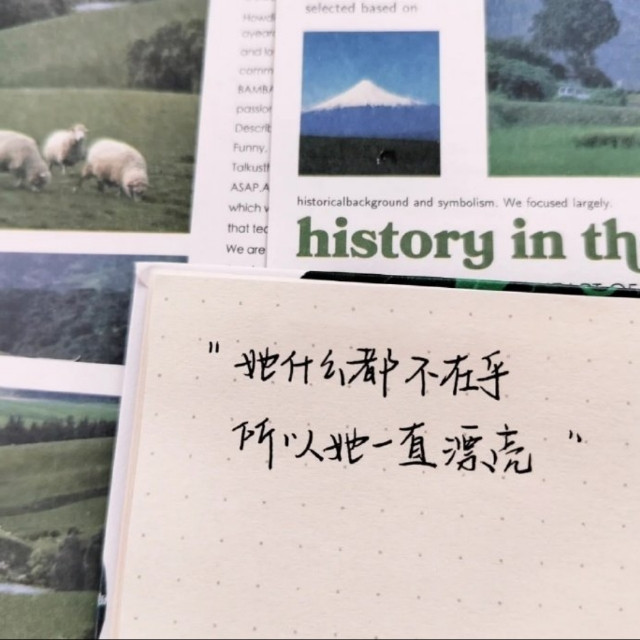 selected based on
historicalbackground and symbolism. We focused largely.
history in th
and lo
comm
BAMBA
passio
Describ
Funny,
Talkustf
ASAP.A
which w
that tea
We are
"她什么都不在乎
所以她一直漂亮"